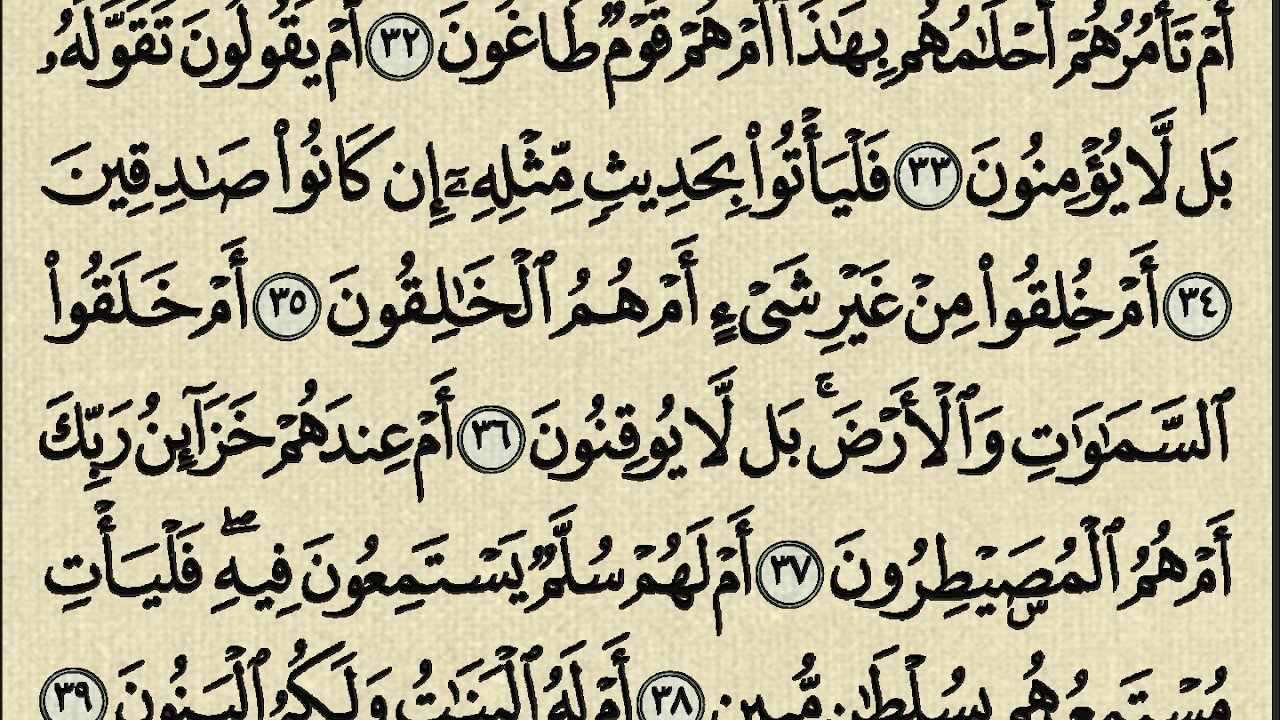 أَمْ تَأْمُرُهُمْ أَحْلَٰمُهُم بِهَٰذَآ ۚ أَمْ هُمْ قَوْمٌ طَاغُونَ ٣٢ أَمْ يَقُولُونَ تَقَوَّلَهُۥ
بَل لَّا يُؤْمِنُونَ ٣٣ فَلْيَأْتُوا۟ بِحَدِيثٍ مِّثْلِهِۦٓ إِن كَانُوا۟ صَٰدِقِينَ
٣٤ أَمْ خُلِقُوا۟ مِنْ غَيْرِ شَىْءٍ أَمْ هُمُ ٱلْخَٰلِقُونَ ٣٥ أَمْ خَلَقُوا۟
ٱلسَّمَٰوَٰتِ وَٱلْأَرْضَ ۚ بَل لَّا يُوقِنُونَ ٣٦ أَمْ عِندَهُمْ خَزَآئِنُ رَبِّكَ
أَمْ هُمُ ٱلْمُصَۣيْطِرُونَ ٣٧ أَمْ لَهُمْ سُلَّمٌ يَسْتَمِعُونَ فِيهِ ۖ فَلْيَأْتِ
مُسْتَمِعُهُم بِسُلْطَٰنٍ مُّبِينٍ ٣٨ أَمْ لَهُ ٱلْبَنَٰتُ وَلَكُمُ ٱلْبَنُونَ ٣٩